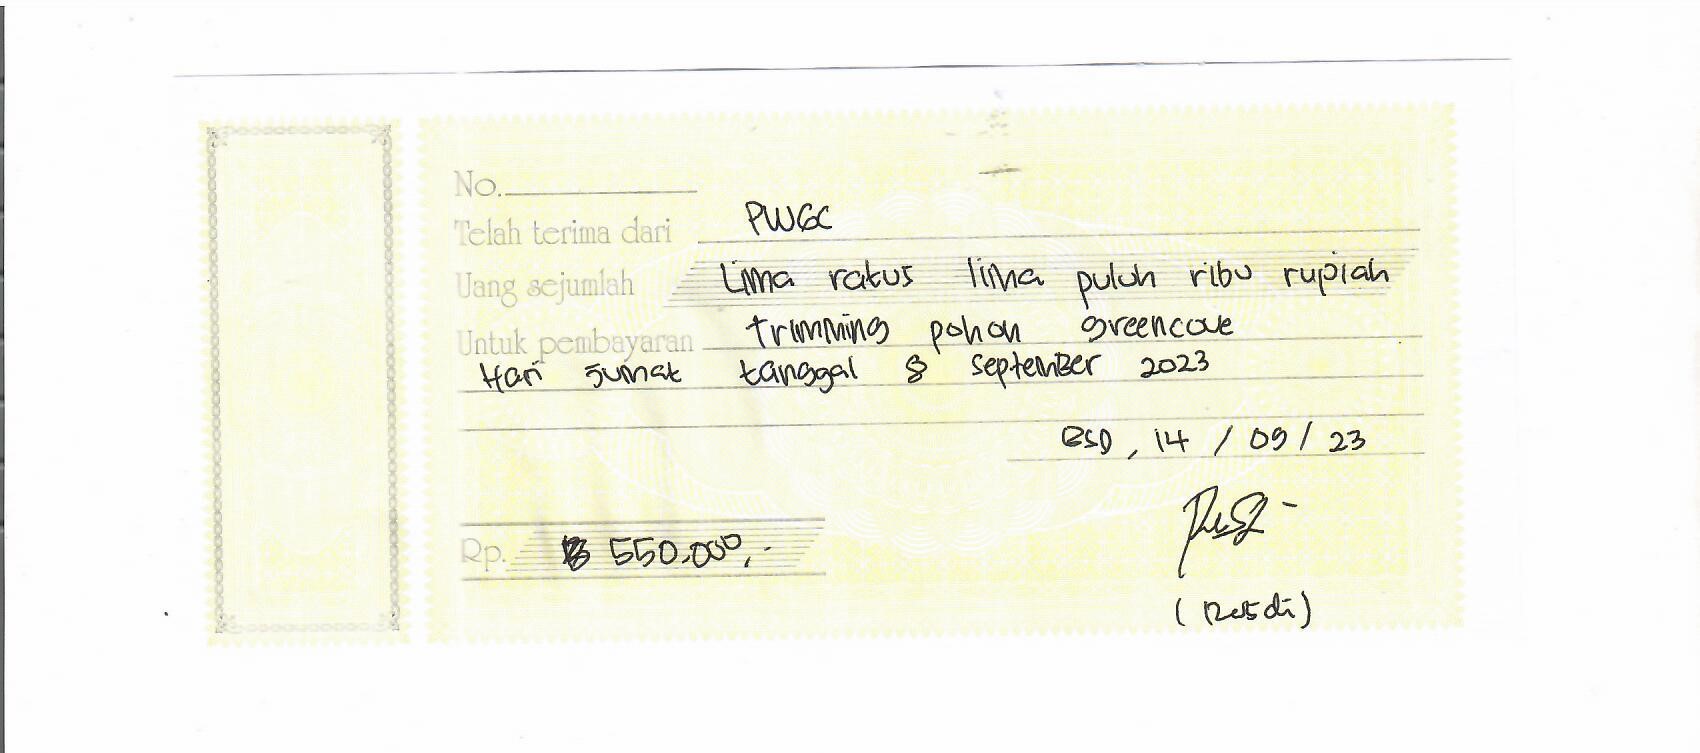 No.
Telah terima dari PWGC
Uang sejumlah Lima ratus lima puluh ribu rupiah
Untuk pembayaran trimming pohon greencove
Hari Jumat tanggal 8 September 2023
BSD, 14 / 09 / 23
Rp. 550.000,-
(Rusdi)